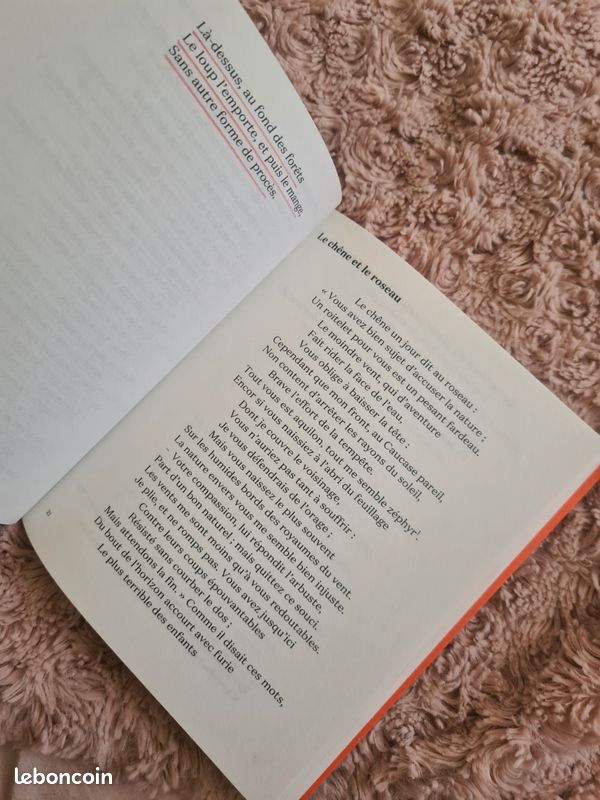 Là-dessus, au fond des forêts
Le loup l'emporte, et puis le mange,
Sans autre forme de procès.
Le chêne et le roseau
Le chêne un jour dit au roseau :
« Vous avez bien sujet d'accuser la nature ;
Un roitelet pour vous est un pesant fardeau.
Le moindre vent, qui d'aventure
Fait rider la face de l'eau,
Vous oblige à baisser la tête :
Cependant que mon front, au Caucase pareil,
Non content d'arrêter les rayons du soleil,
Brave l'effort de la tempête.
Tout vous est aquilon, tout me semble zéphyr¹.
Encor si vous naissiez à l'abri du feuillage
Dont je couvre le voisinage,
Vous n'auriez pas tant à souffrir :
Je vous défendrais de l'orage ;
Mais vous naissez le plus souvent
Sur les humides bords des royaumes du vent.
La nature envers vous me semble bien injuste.
– Votre compassion, lui répondit l'arbuste,
Part d'un bon naturel ; mais quittez ce souci.
Les vents me sont moins qu'à vous redoutables.
Je plie, et ne romps pas. Vous avez jusqu'ici
Contre leurs coups épouvantables
Résisté sans courber le dos ;
Mais attendons la fin. » Comme il disait ces mots,
Du bout de l'horizon accourt avec furie
Le plus terrible des enfants
leboncoin